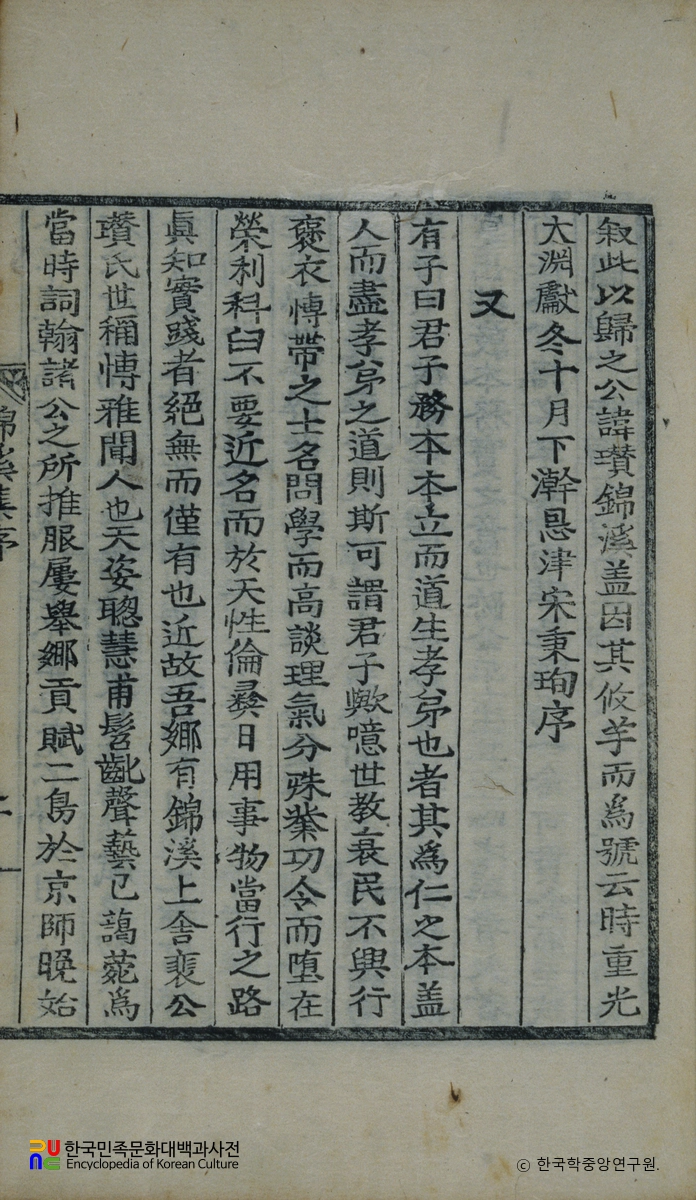 叙此以歸之公諱瓚錦溪盖因其攸芋而為號云時重光
大淵獻冬十月下澣恩津宋秉珣序
又
有子曰君子務本本立而道生孝弟也者其為仁之本盖
人而盡孝弟之道則斯可謂君子歟噫世教衰民不興行
褒衣愽帶之士名問學而高談理氣分殊業功令而墮在
榮利科臼不要近名而於天性倫彜日用事物當行之路
眞知實踐者絕無而僅有也近故吾鄉有錦溪上舍裴公
瓚氏世稱愽雅聞人也天姿聰慧甫髫齔聲藝已藹菀為
當時詞翰諸公之所推服屢舉鄉貢賦二鳥於京師晚始
錦溪集序
二
한국민족문화대백과사전
Encyclopedia of Korean Culture
© 한국학중앙연구원.